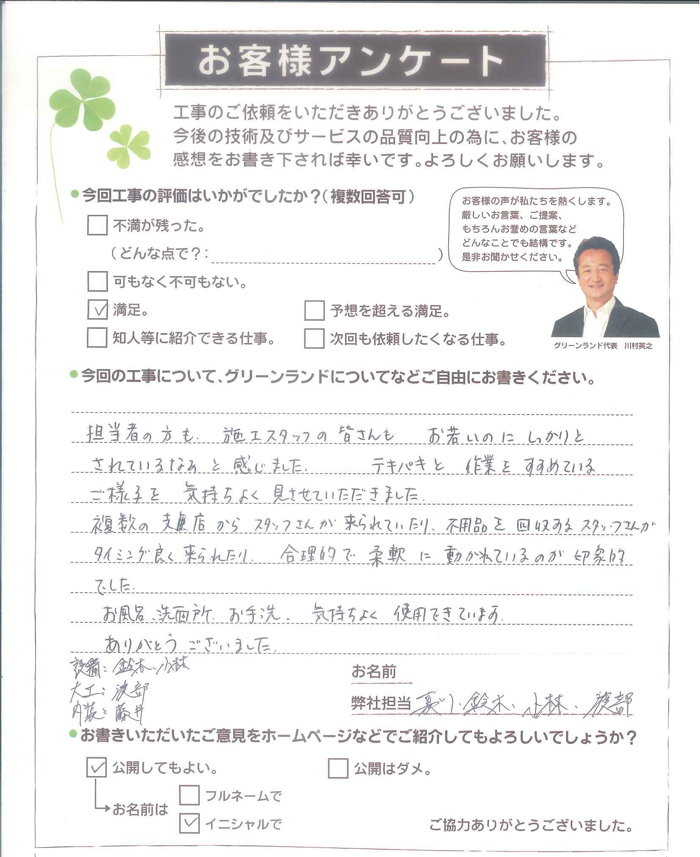 お客様アンケート
工事のご依頼をいただきありがとうございました。
今後の技術及びサービスの品質向上の為に、お客様の
感想をお書き下されば幸いです。よろしくお願いします。
今回工事の評価はいかがでしたか?(複数回答可)
不満が残った。
(どんな点で?: )
可もなく不可もない。
満足。
予想を超える満足。
知人等に紹介できる仕事。
次回も依頼したくなる仕事。
お客様の声が私たちを熱くします。
厳しいお言葉、ご提案、
もちろんお誉めの言葉など
どんなことでも結構です。
是非お聞かせください。
グリーンランド代表 川村英之
今回の工事について、グリーンランドについてなどご自由にお書きください。
担当者の方も、施工スタッフの皆さんも お若いのに しっかりと
されているなぁと感じました。 テキパキと 作業を すすめている
ご様子を 気持ちよく 見させていただきました。
複数の 支店から スタッフさんが 来られていたり、不用品を 回収する スタッフさんが
タイミング良く 来られたり、 合理的で 柔軟に 動かれているのが 印象的
でした。
お風呂、洗面所、お手洗、 気持ちよく 使用できています。
ありがとう ございました。
設備:鈴木・小林
大工:渡部
内装:藤井
お名前
弊社担当 鈴木・小林・渡部
お書きいただいたご意見をホームページなどでご紹介してもよろしいでしょうか?
公開してもよい。
公開はダメ。
お名前は
フルネームで
イニシャルで
ご協力ありがとうございました。